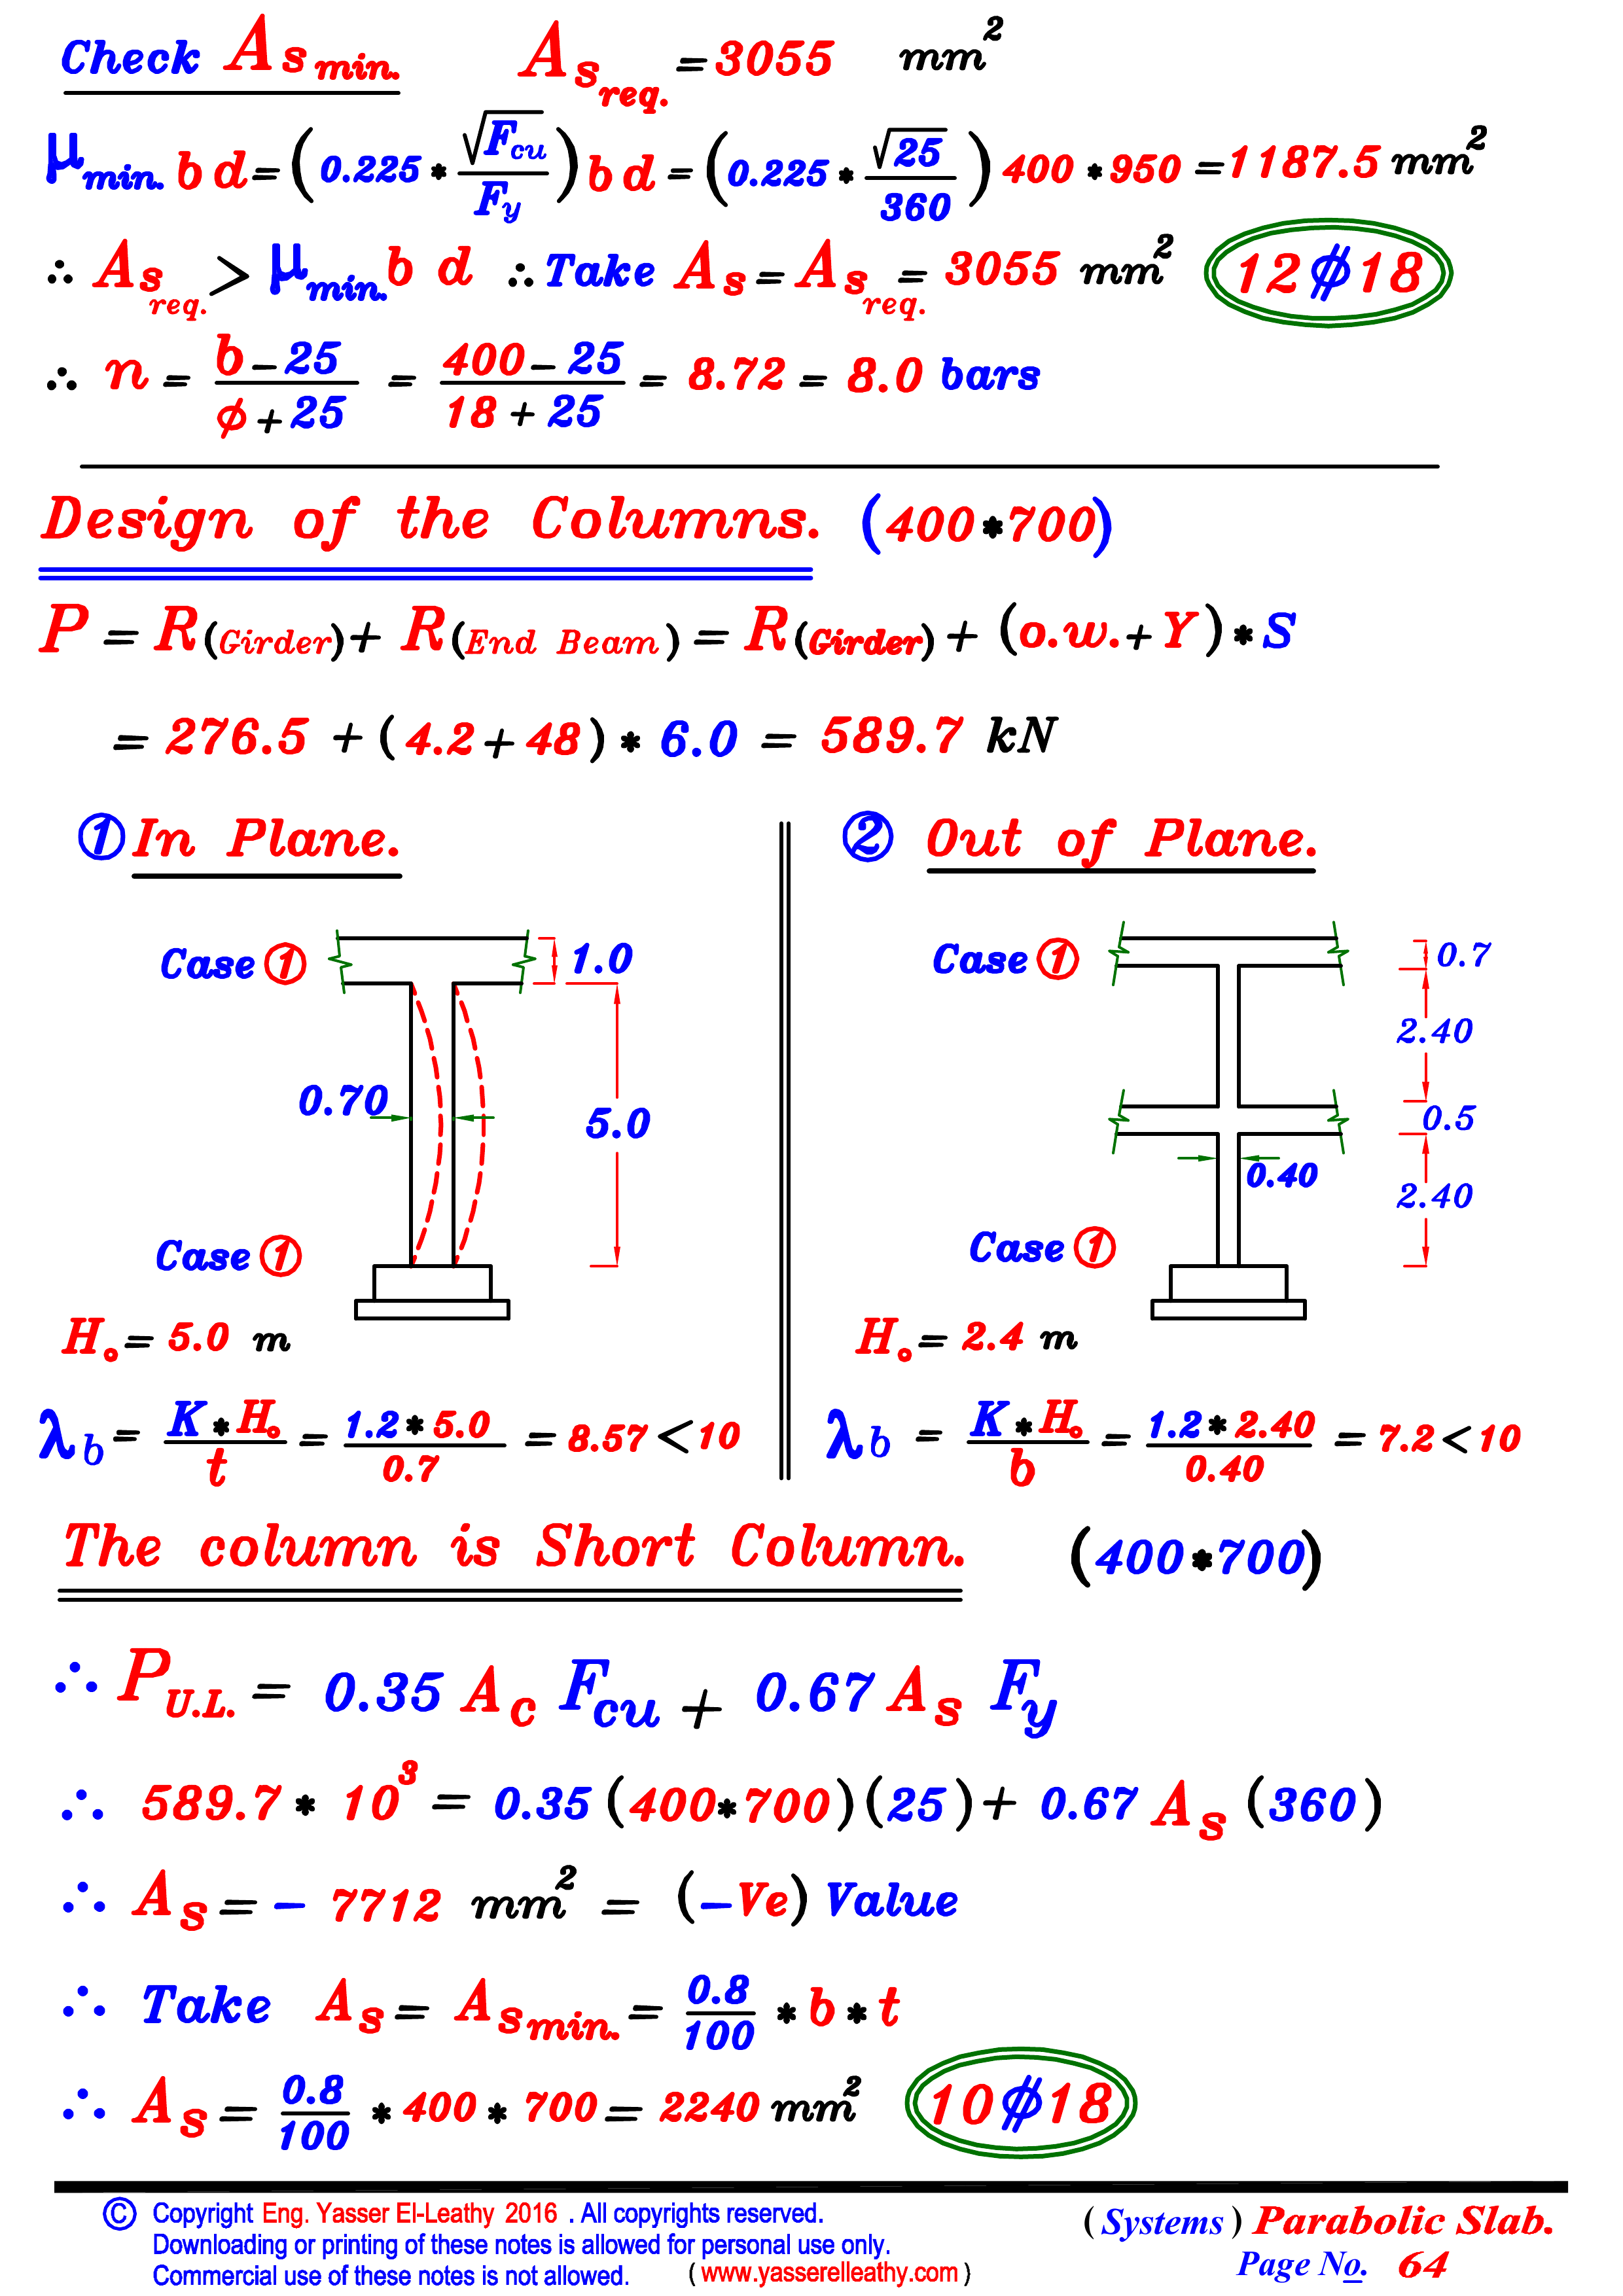 Check As min. As req. = 3055 mm²
μ min. b d = (0.225 * √Fcu / Fy) b d = (0.225 * √25 / 360) 400 * 950 = 1187.5 mm²
∴ As req. > μ min. b d ∴ Take As = As req. = 3055 mm² 12 ⌀ 18
∴ n = (b − 25) / (φ + 25) = (400 − 25) / (18 + 25) = 8.72 = 8.0 bars
Design of the Columns. (400 * 700)
P = R (Girder) + R (End Beam) = R (Girder) + (o.w. + Y) * S
= 276.5 + (4.2 + 48) * 6.0 = 589.7 kN
① In Plane.
Case ①
1.0
0.70
5.0
Case ①
H₀ = 5.0 m
λb = K * H₀ / t = 1.2 * 5.0 / 0.7 = 8.57 < 10
② Out of Plane.
Case ①
0.7
2.40
0.5
0.40
2.40
Case ①
H₀ = 2.4 m
λb = K * H₀ / b = 1.2 * 2.40 / 0.40 = 7.2 < 10
The column is Short Column. (400 * 700)
∴ P U.L. = 0.35 Ac Fcu + 0.67 As Fy
∴ 589.7 * 10³ = 0.35 (400 * 700) (25) + 0.67 As (360)
∴ As = − 7712 mm² = (−Ve) Value
∴ Take As = As min. = 0.8 / 100 * b * t
∴ As = 0.8 / 100 * 400 * 700 = 2240 mm² 10 ⌀ 18
© Copyright Eng. Yasser El-Leathy 2016 . All copyrights reserved.
Downloading or printing of these notes is allowed for personal use only.
Commercial use of these notes is not allowed. ( www.yasserelleathy.com )
( Systems ) Parabolic Slab.
Page No. 64